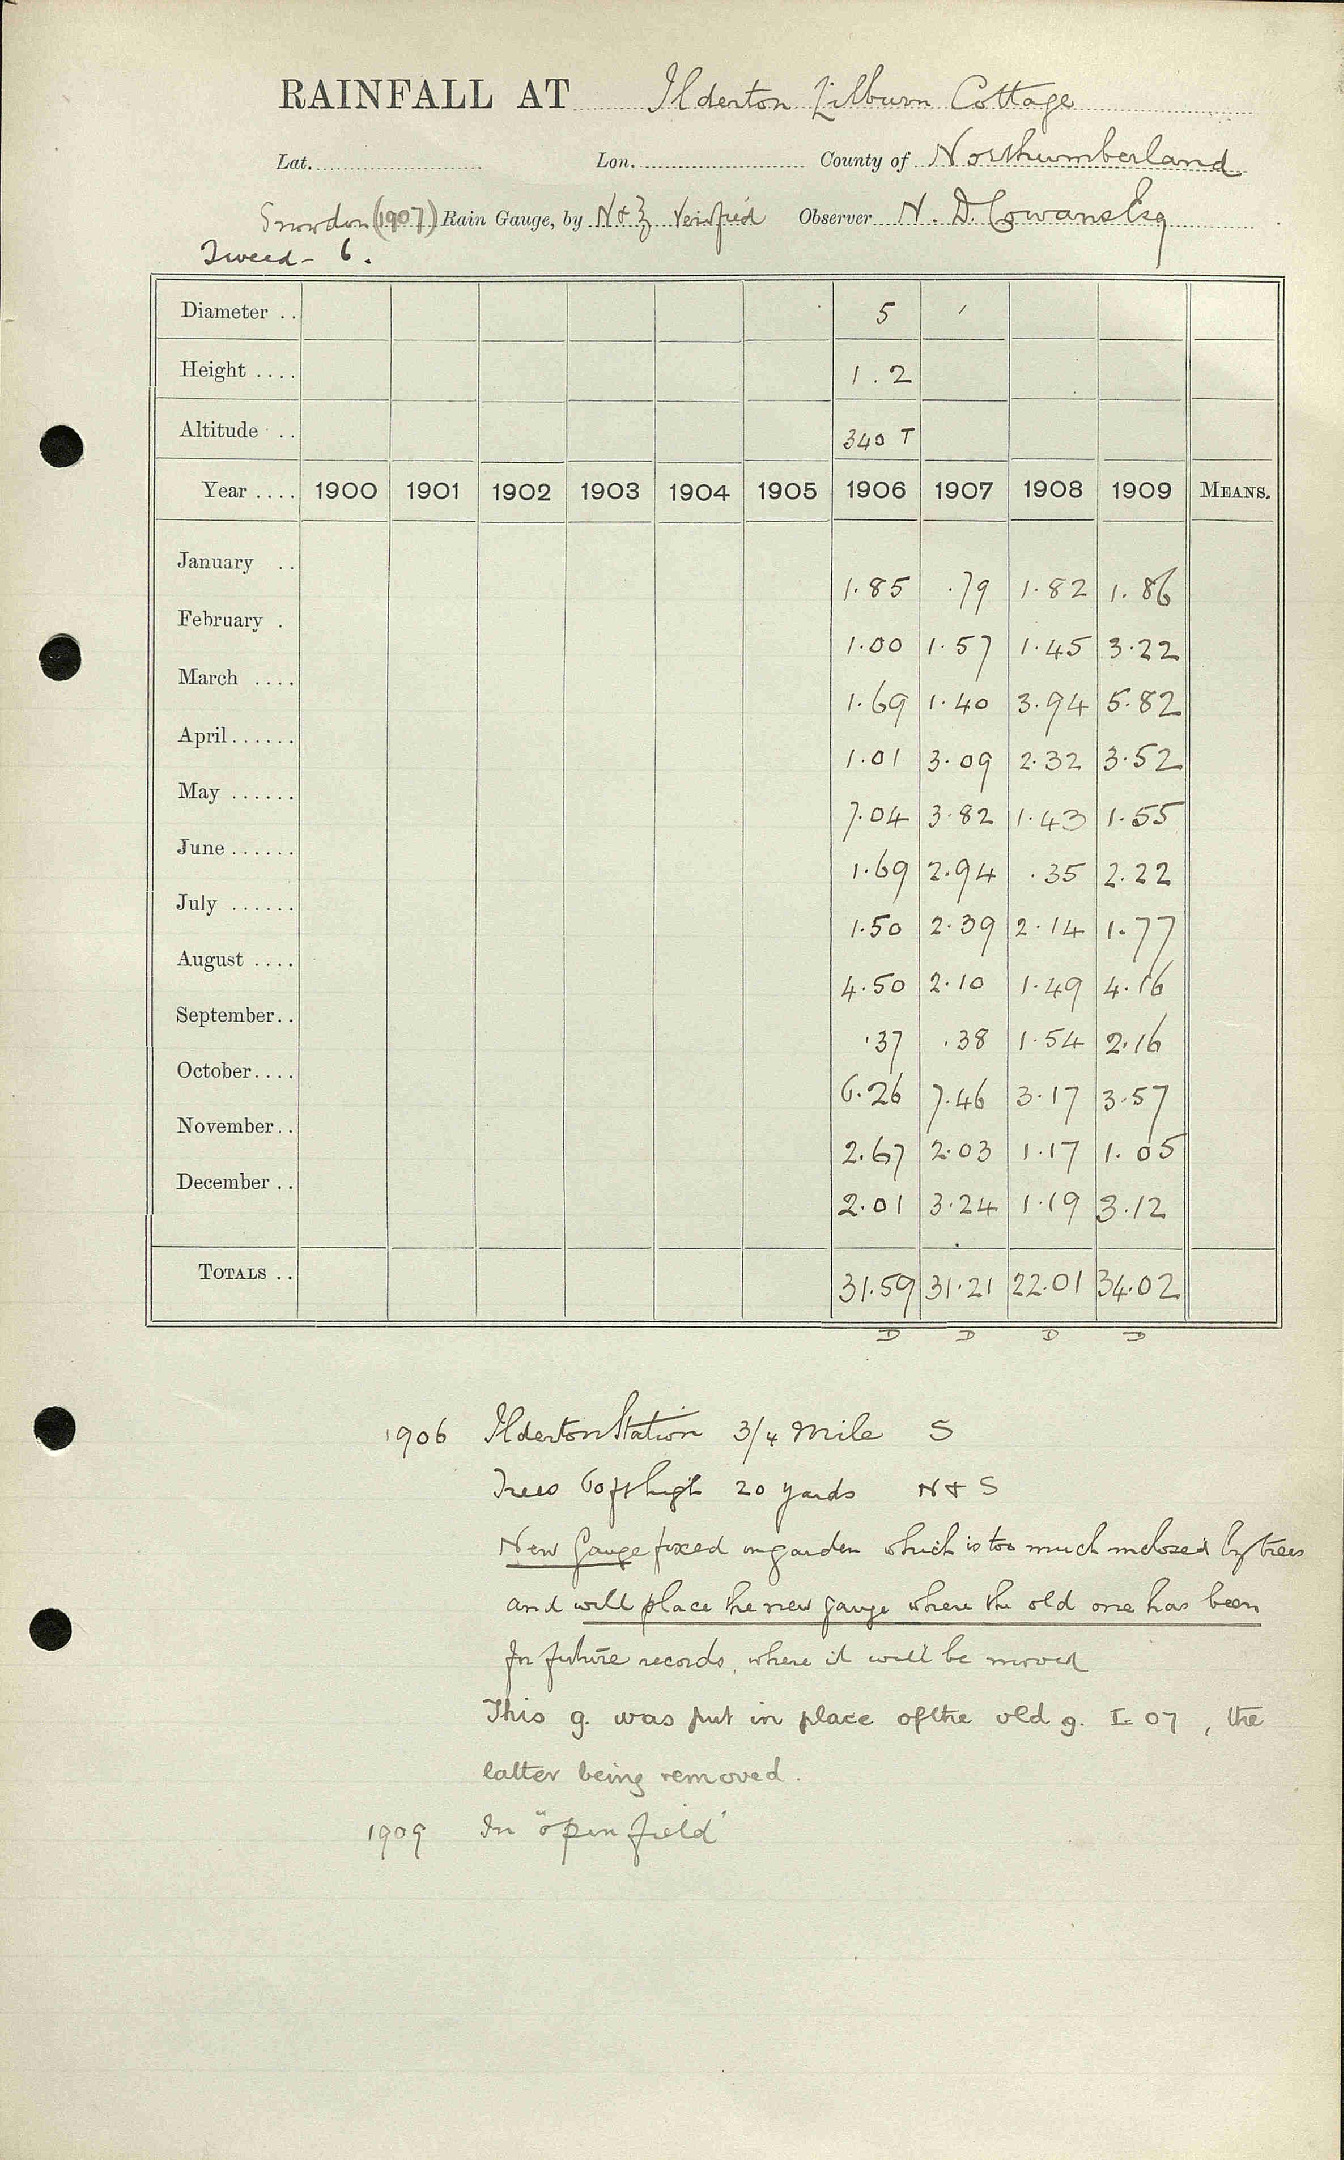 RAINFALL AT Ilderton Lilburn Cottage
Lat. Lon. County of Northumberland
Snowdon (1907) Rain Gauge, by N & Z Verified Observer N. D. Cowans Esq
Tweed - 6.
Diameter .. 5 '
Height .... 1.2
Altitude .. 340 T
Year .... 1900 1901 1902 1903 1904 1905 1906 1907 1908 1909 MEANS.
January .. 1.85 .79 1.82 1.86
February . 1.00 1.57 1.45 3.22
March .... 1.69 1.40 3.94 5.82
April...... 1.01 3.09 2.32 3.52
May ...... 7.04 3.82 1.43 1.55
June ...... 1.69 2.94 .35 2.22
July ...... 1.50 2.39 2.14 1.77
August .... 4.50 2.10 1.49 4.16
September.. .37 .38 1.54 2.16
October.... 6.26 7.46 3.17 3.57
November.. 2.67 2.03 1.17 1.05
December .. 2.01 3.24 1.19 3.12
TOTALS .. 31.59 31.21 22.01 34.02
D D D D
1906 Ilderton Station 3/4 Mile S
Trees 60 ft high 20 yards N & S
New Gauge fixed in garden which is too much inclosed by trees
and will place the new gauge where the old one has been
for future records, where it will be moved
This g. was put in place of the old g. I - 07, the
latter being removed.
1909 In "open field"